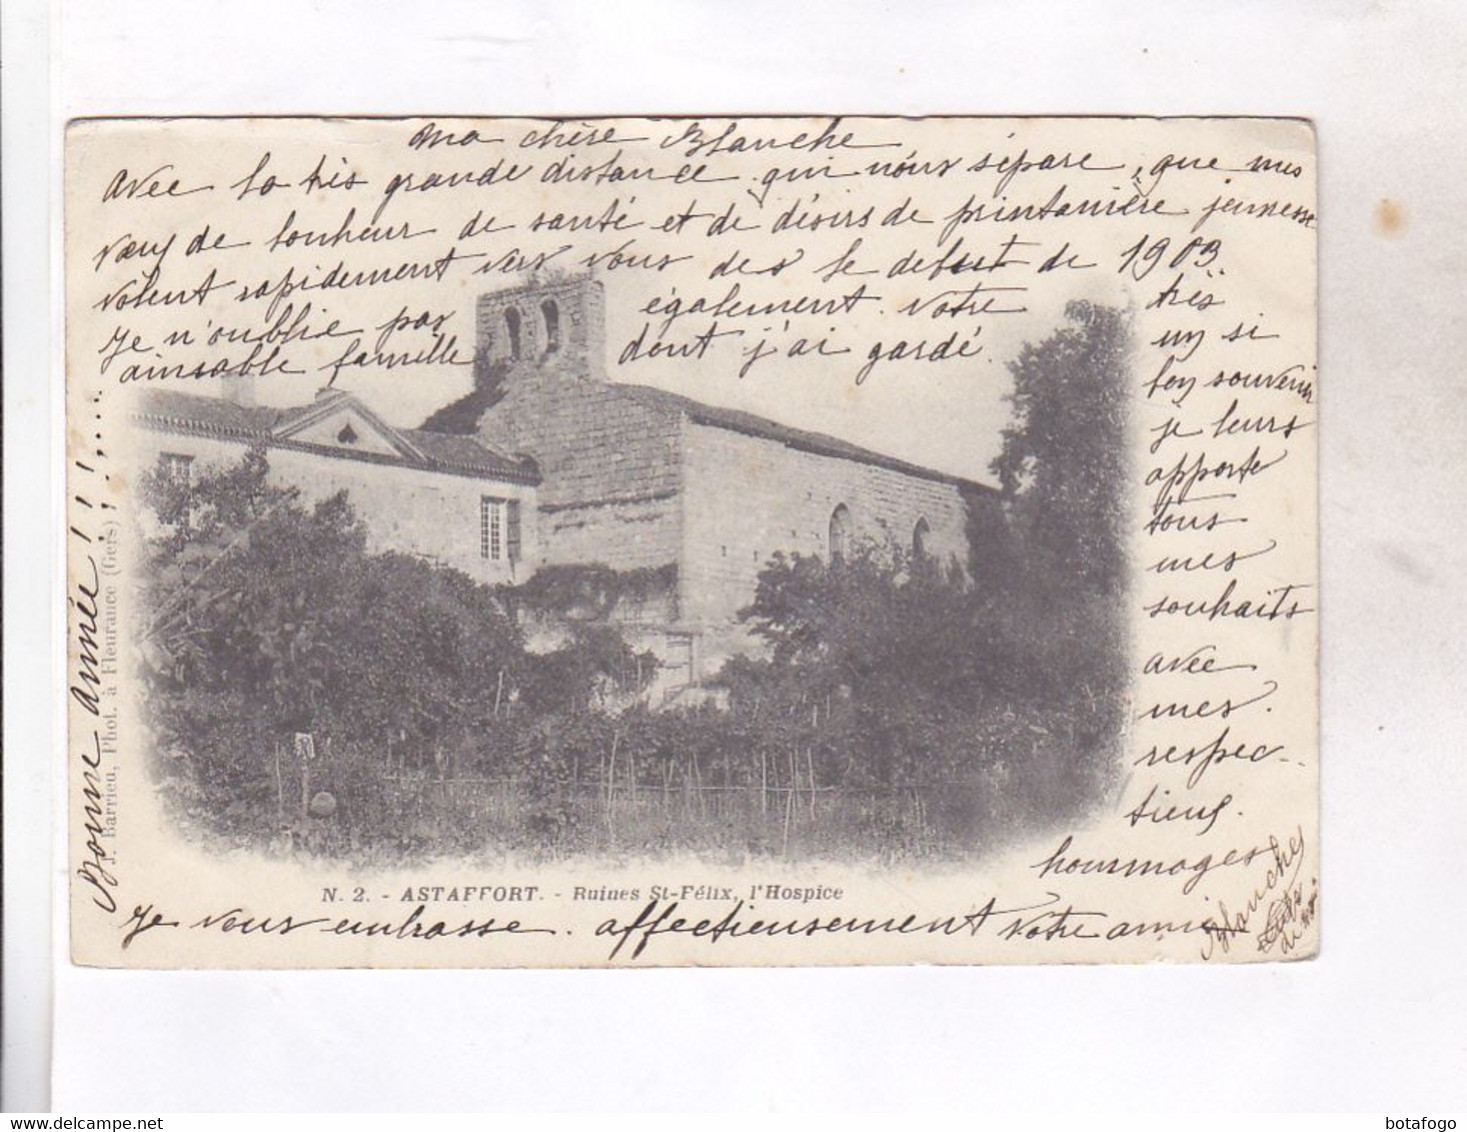 Ma chère Blanche
Avec la très grande distance qui nous sépare, que mes
vœux de bonheur de santé et de désirs de printanière jeunesse
volent rapidement vers vous des le debut de 1903.
Je n'oublie pas également votre très
aimable famille dont j'ai gardé un si
bon souvenir
je leurs
apporte
tous
mes
souhaits
avec
mes
respec-
tieux
hommages
Je vous embrasse affectieusement votre amie
Blanche
Bonne année!!!!....
J. Barrieu, Phot. à Fleurance (Gers)
N. 2. - ASTAFFORT. - Ruines St-Félix, l'Hospice
botafogo